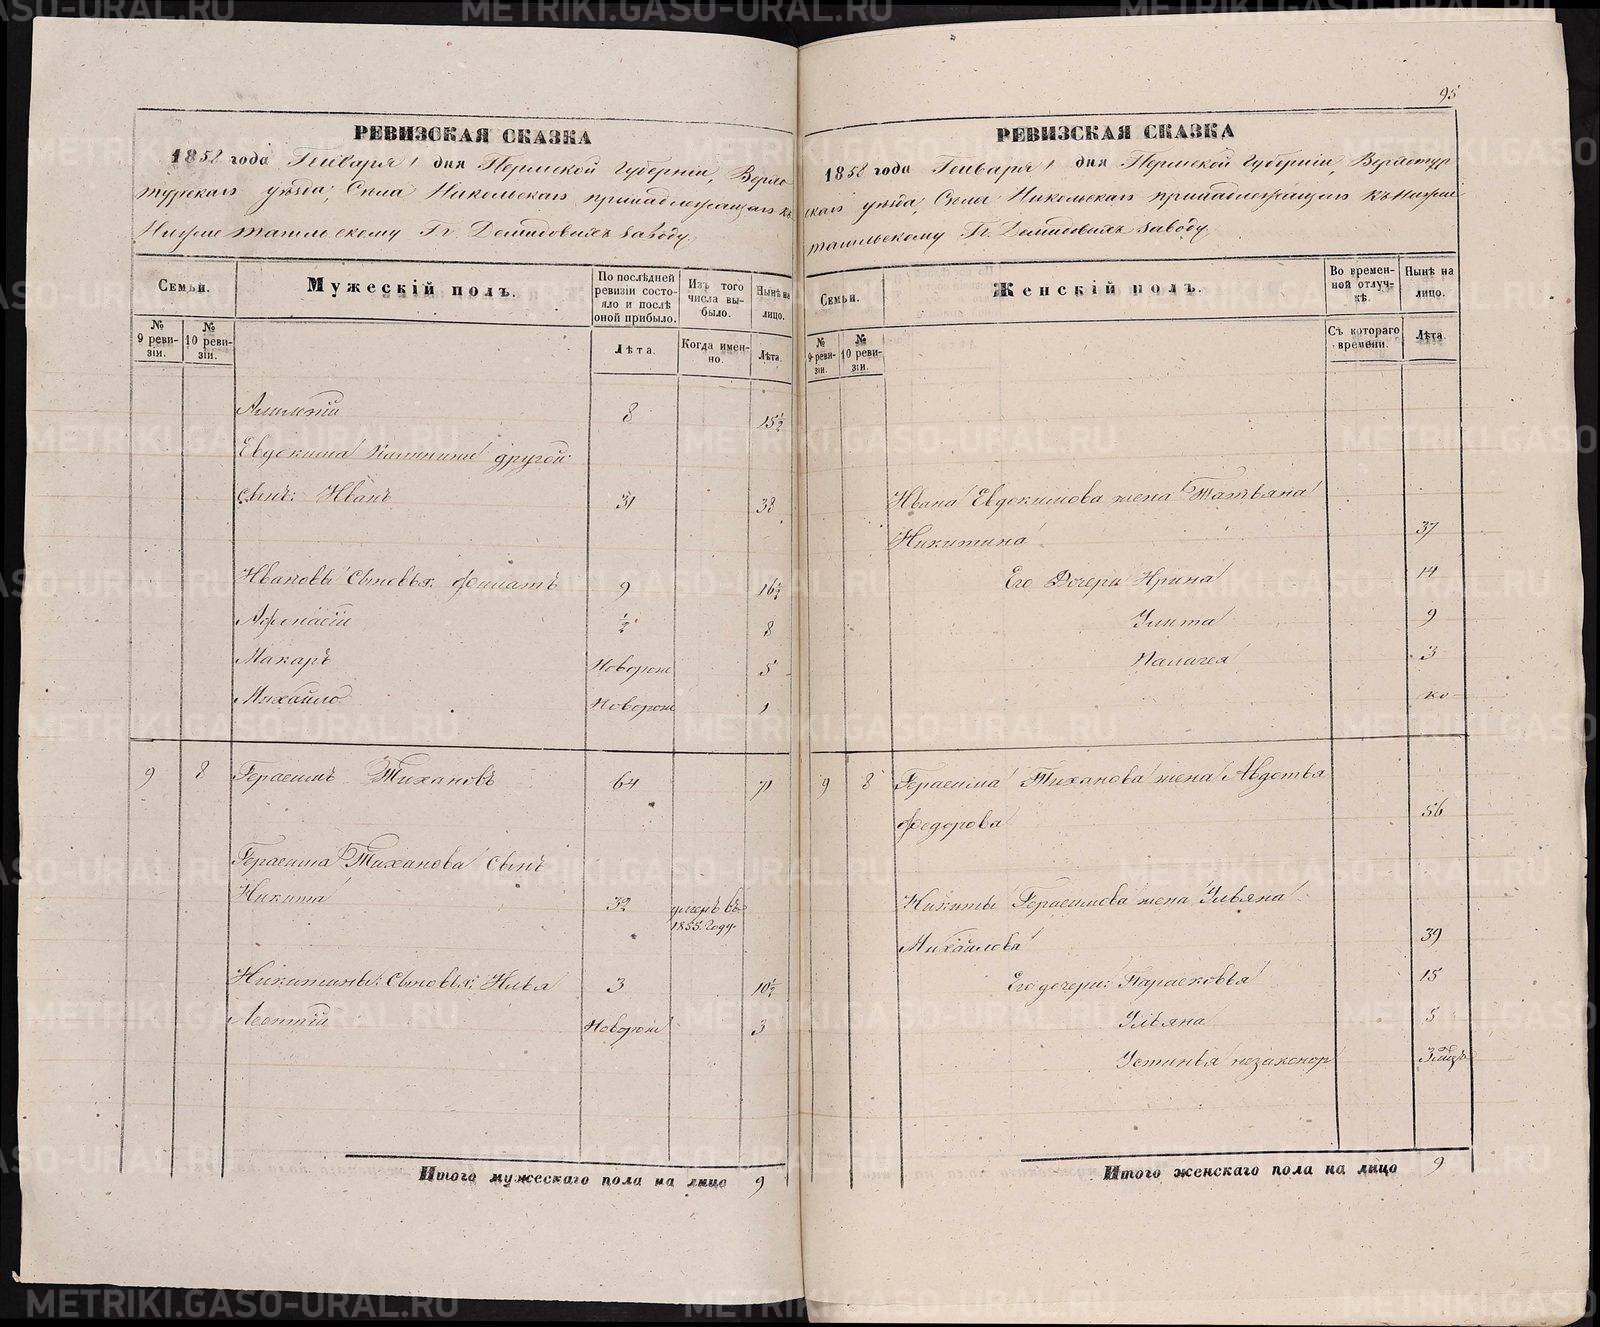 РЕВИЗСКАЯ СКАЗКА
1858 года Генваря 1 дня Пермской Губерніи, Верхо
турскаго уѣзда, Села Никольскаго принадлежащаго къ
Нижне Тагильскому Гг. Демидовыхъ заводу.
Семьи.
№ 9 ревизіи.
№ 10 ревизіи.
Мужескій полъ.
По послѣдней ревизіи состояло и послѣ оной прибыло.
Лѣта.
Изъ того числа выбыло.
Когда именно.
Нынѣ на лицо.
Лѣта.
8 15½
Евдокима Калинина другой
сынъ: Иванъ 31 38
Ивановы Сыновья: Филатъ 9 16½
Афонасій ½ 8
Макаръ Новорож 5
Михайло Новорож 1
9 8 Герасимъ Тихановъ 64 71
Герасима Тиханова Сынъ
Никита 32 умеръ въ 1855 году.
Никитины Сыновья: Илья 3 10½
Леонтій Новорож 3
Итого мужескаго пола на лицо 9
95
РЕВИЗСКАЯ СКАЗКА
1858 года Генваря 1 дня Пермской Губерніи, Верхотур
скаго уѣзда, Села Никольскаго принадлежащаго къ Нижне
тагильскому Гг. Демидовыхъ заводу.
Семьи.
№ 9 ревизіи.
№ 10 ревизіи.
Женскій полъ.
Во временной отлучкѣ.
Съ котораго времени.
Нынѣ на лицо.
Лѣта.
Ивана Евдокимова жена Татьяна
Никитина 37
Его Дочери Ирина 14
Улита 9
Палагея 3
9 8 Герасима Тиханова жена Авдотья
Федорова 56
Никиты Герасимова жена Ульяна
Михайлова 39
Его дочери: Парасковья 15
Ульяна 5
Устинья незаконор
Итого женскаго пола на лицо 9
METRIKI.GASO-URAL.RU